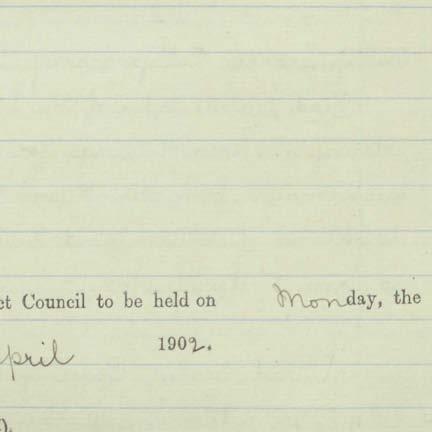 ct Council to be held on Monday, the
April 1902.
).